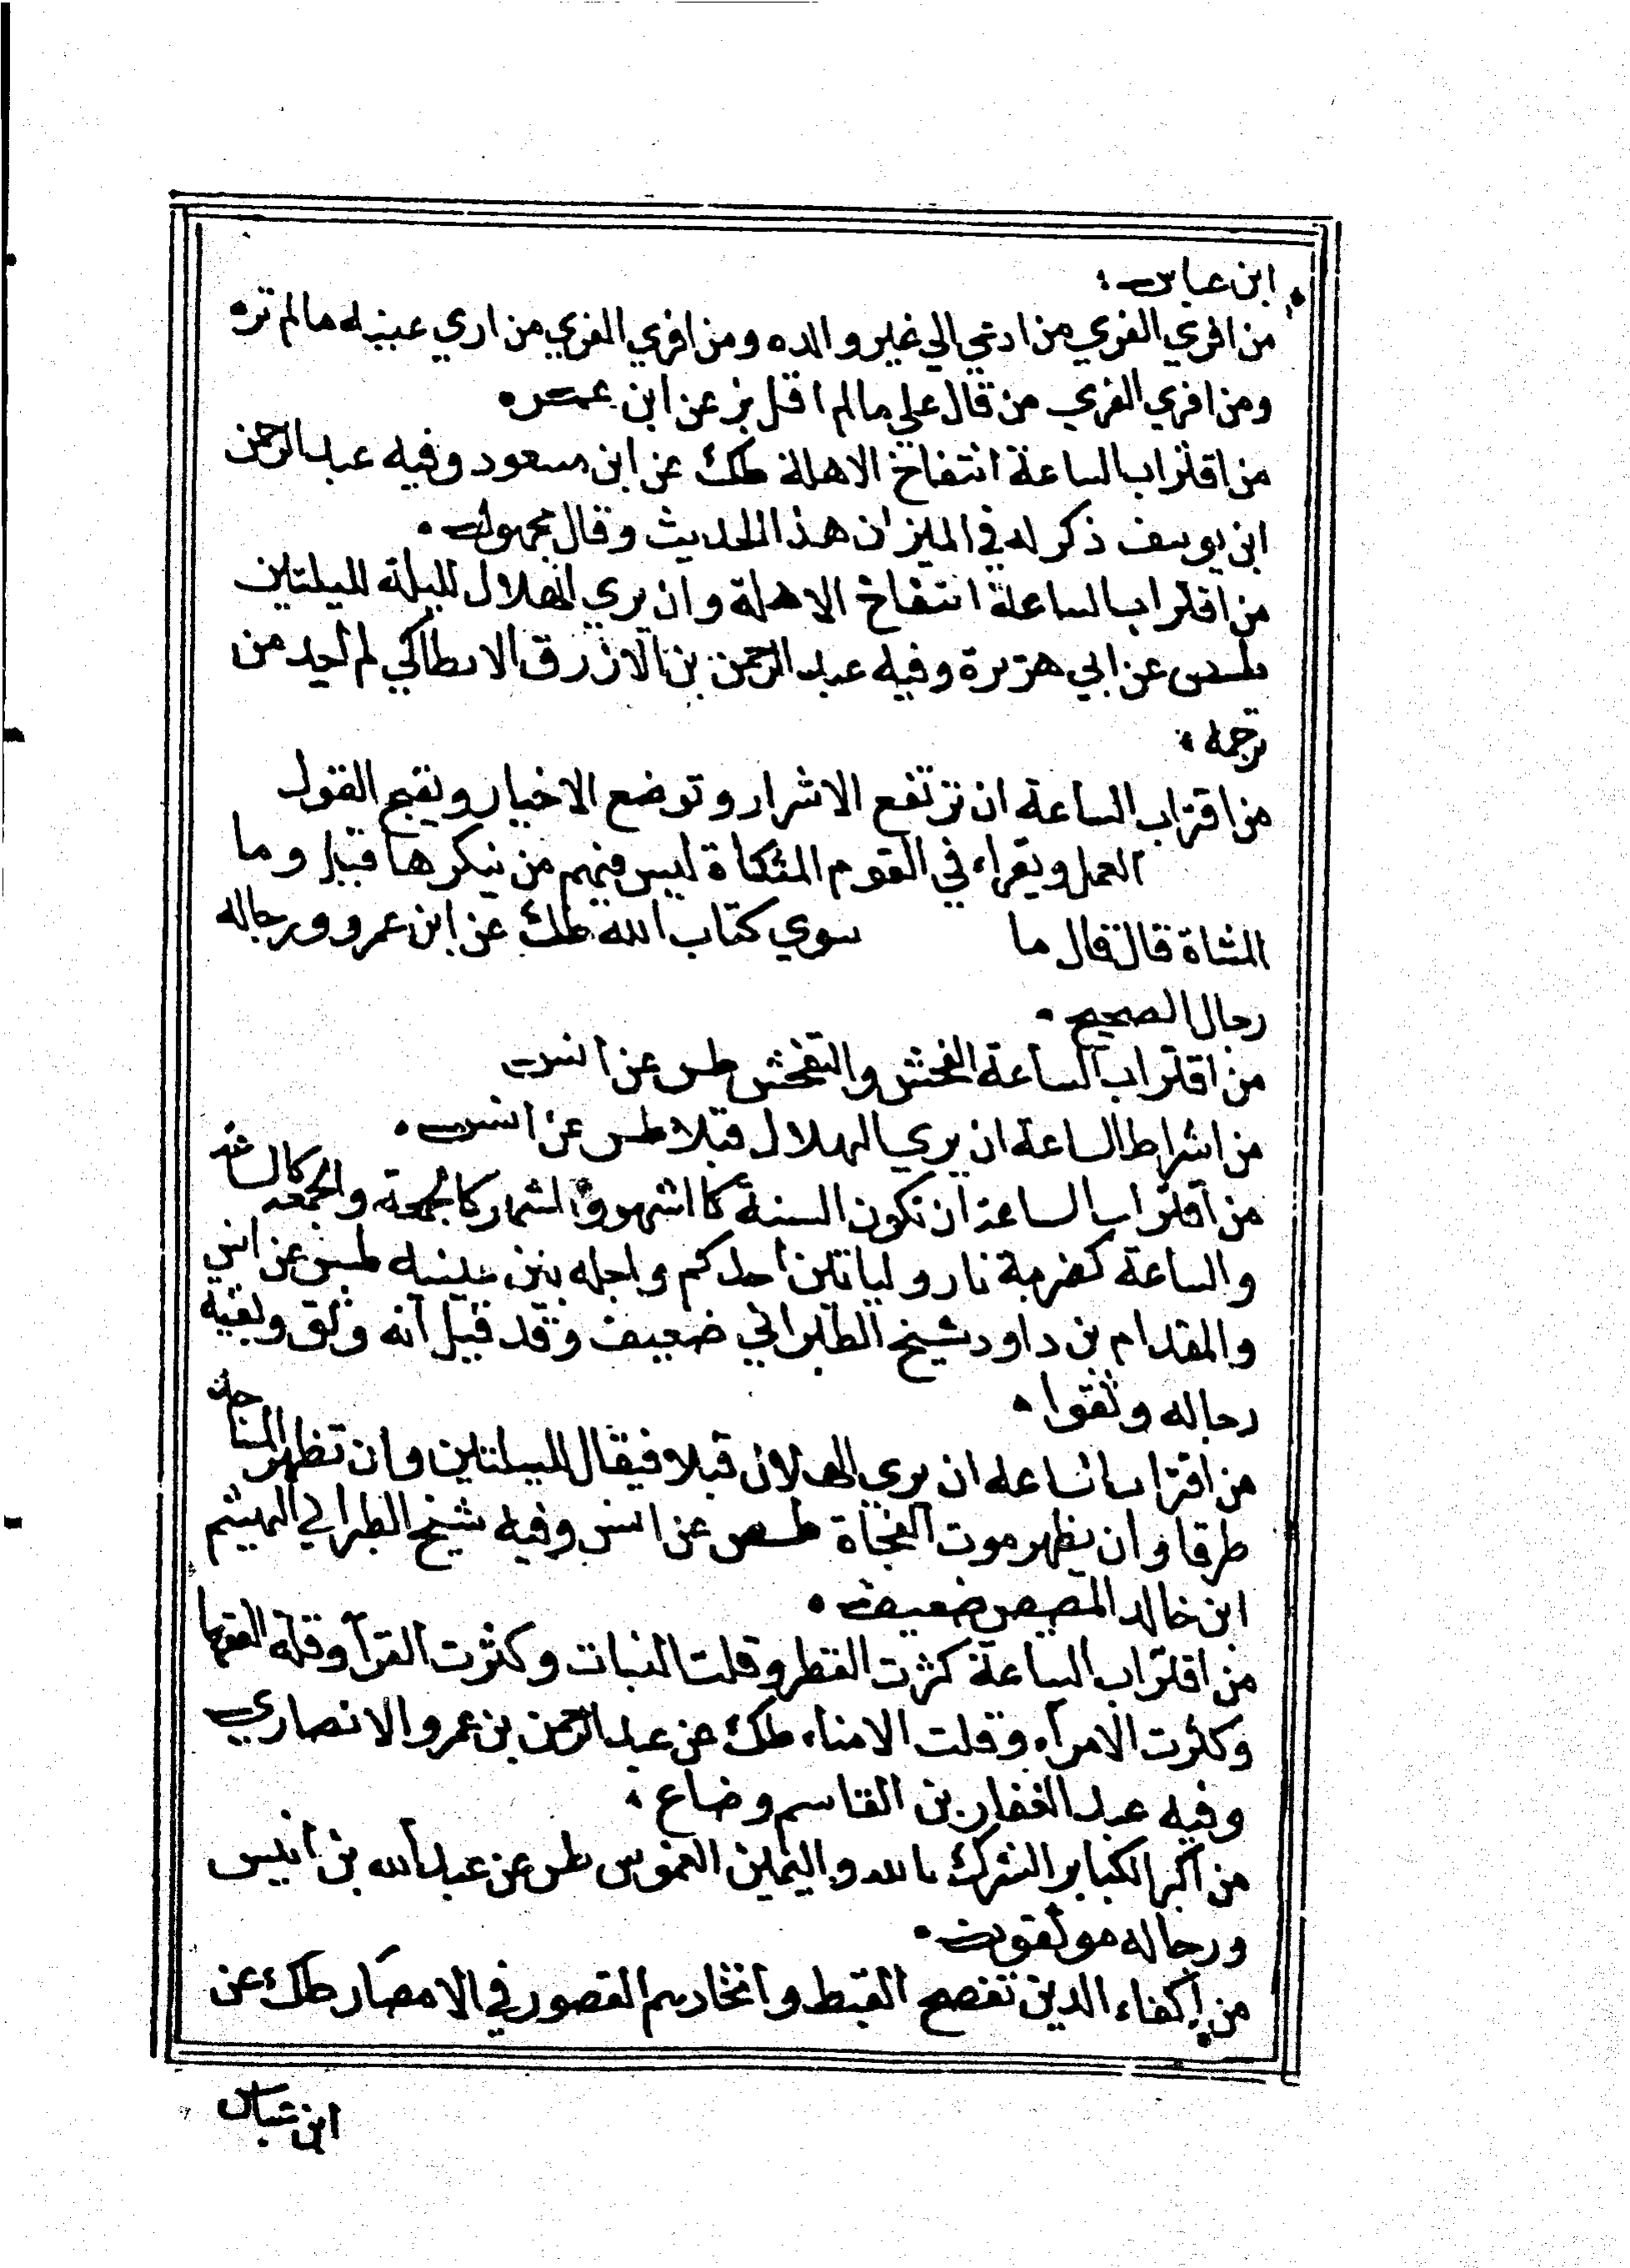 ابن عباس
من افري الفري من ادعي الي غير والده ومن افري الفري من اري عينيه ما لم تره
ومن افري الفري من قال علي ما لم اقل بز عن ابن عمر
من اقتراب الساعة انتفاخ الاهلة طك عن ابن مسعود وفيه عبد الرحمن
ابن يوسف ذكر له في الميزان هذا الحديث وقال مجهول
من اقتراب الساعة انتفاخ الاهلة وان يري الهلال لليلة لليلتين
طسص عن ابي هريرة وفيه عبد الرحمن بن الازرق الانطاكي لم اجد من
ترجمه
من اقتراب الساعة ان ترتفع الاشرار وتوضع الاخيار ويقبح القول
العمل ويقراء في القوم المثكاة ليس فيهم من ينكرها قيل وما
المثناة قال قال ما سوي كتاب الله طك عن ابن عمرو ورجاله
رجال الصحيح
من اقتراب الساعة الفحش والتفحش طس عن انس
من اشراط الساعة ان يري الهلال قبلا طس عن انس
من اقتراب الساعة ان تكون السنة كالشهر والشهر كالجمعة والجمعه كالساعة
والساعة كضرمة نار ولياتين احدكم واجله بين عينيه طس عن انس
والمقدام بن داود شيخ الطبراني ضعيف وقد قيل انه وثق وبقية
رجاله وثقوا
من اقتراب الساعه ان يري الهلال قبلا فيقال لليلتين وان تظهر المساجد
طرقا وان يظهر موت الفجاة طسص عن انس وفيه شيخ الطبراني الهيثم
ابن خالد المصيصي ضعيف
من اقتراب الساعة كثرت القطر وقلت النبات وكثرت القرآ وقلة الفقها
وكثرت الامرآء وقلت الامناء طك عن عبد الرحمن بن عمرو الانصاري
وفيه عبد الغفار بن القاسم وضاع
من اكبر الكباير الشرك بالله واليمين الغموس طس عن عبد الله بن انيس
ورجاله موثقون
من إكفاء الدين تفصح القبط واتخاذهم القصور في الامصار طك عن
ابن عباس